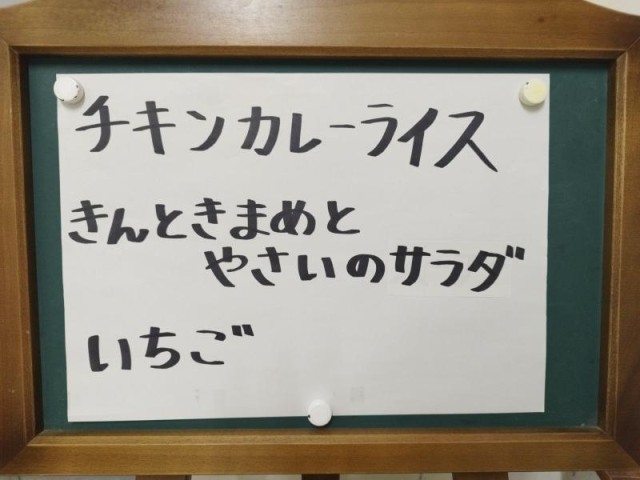 チキンカレーライス
きんときまめと
やさいのサラダ
いちご